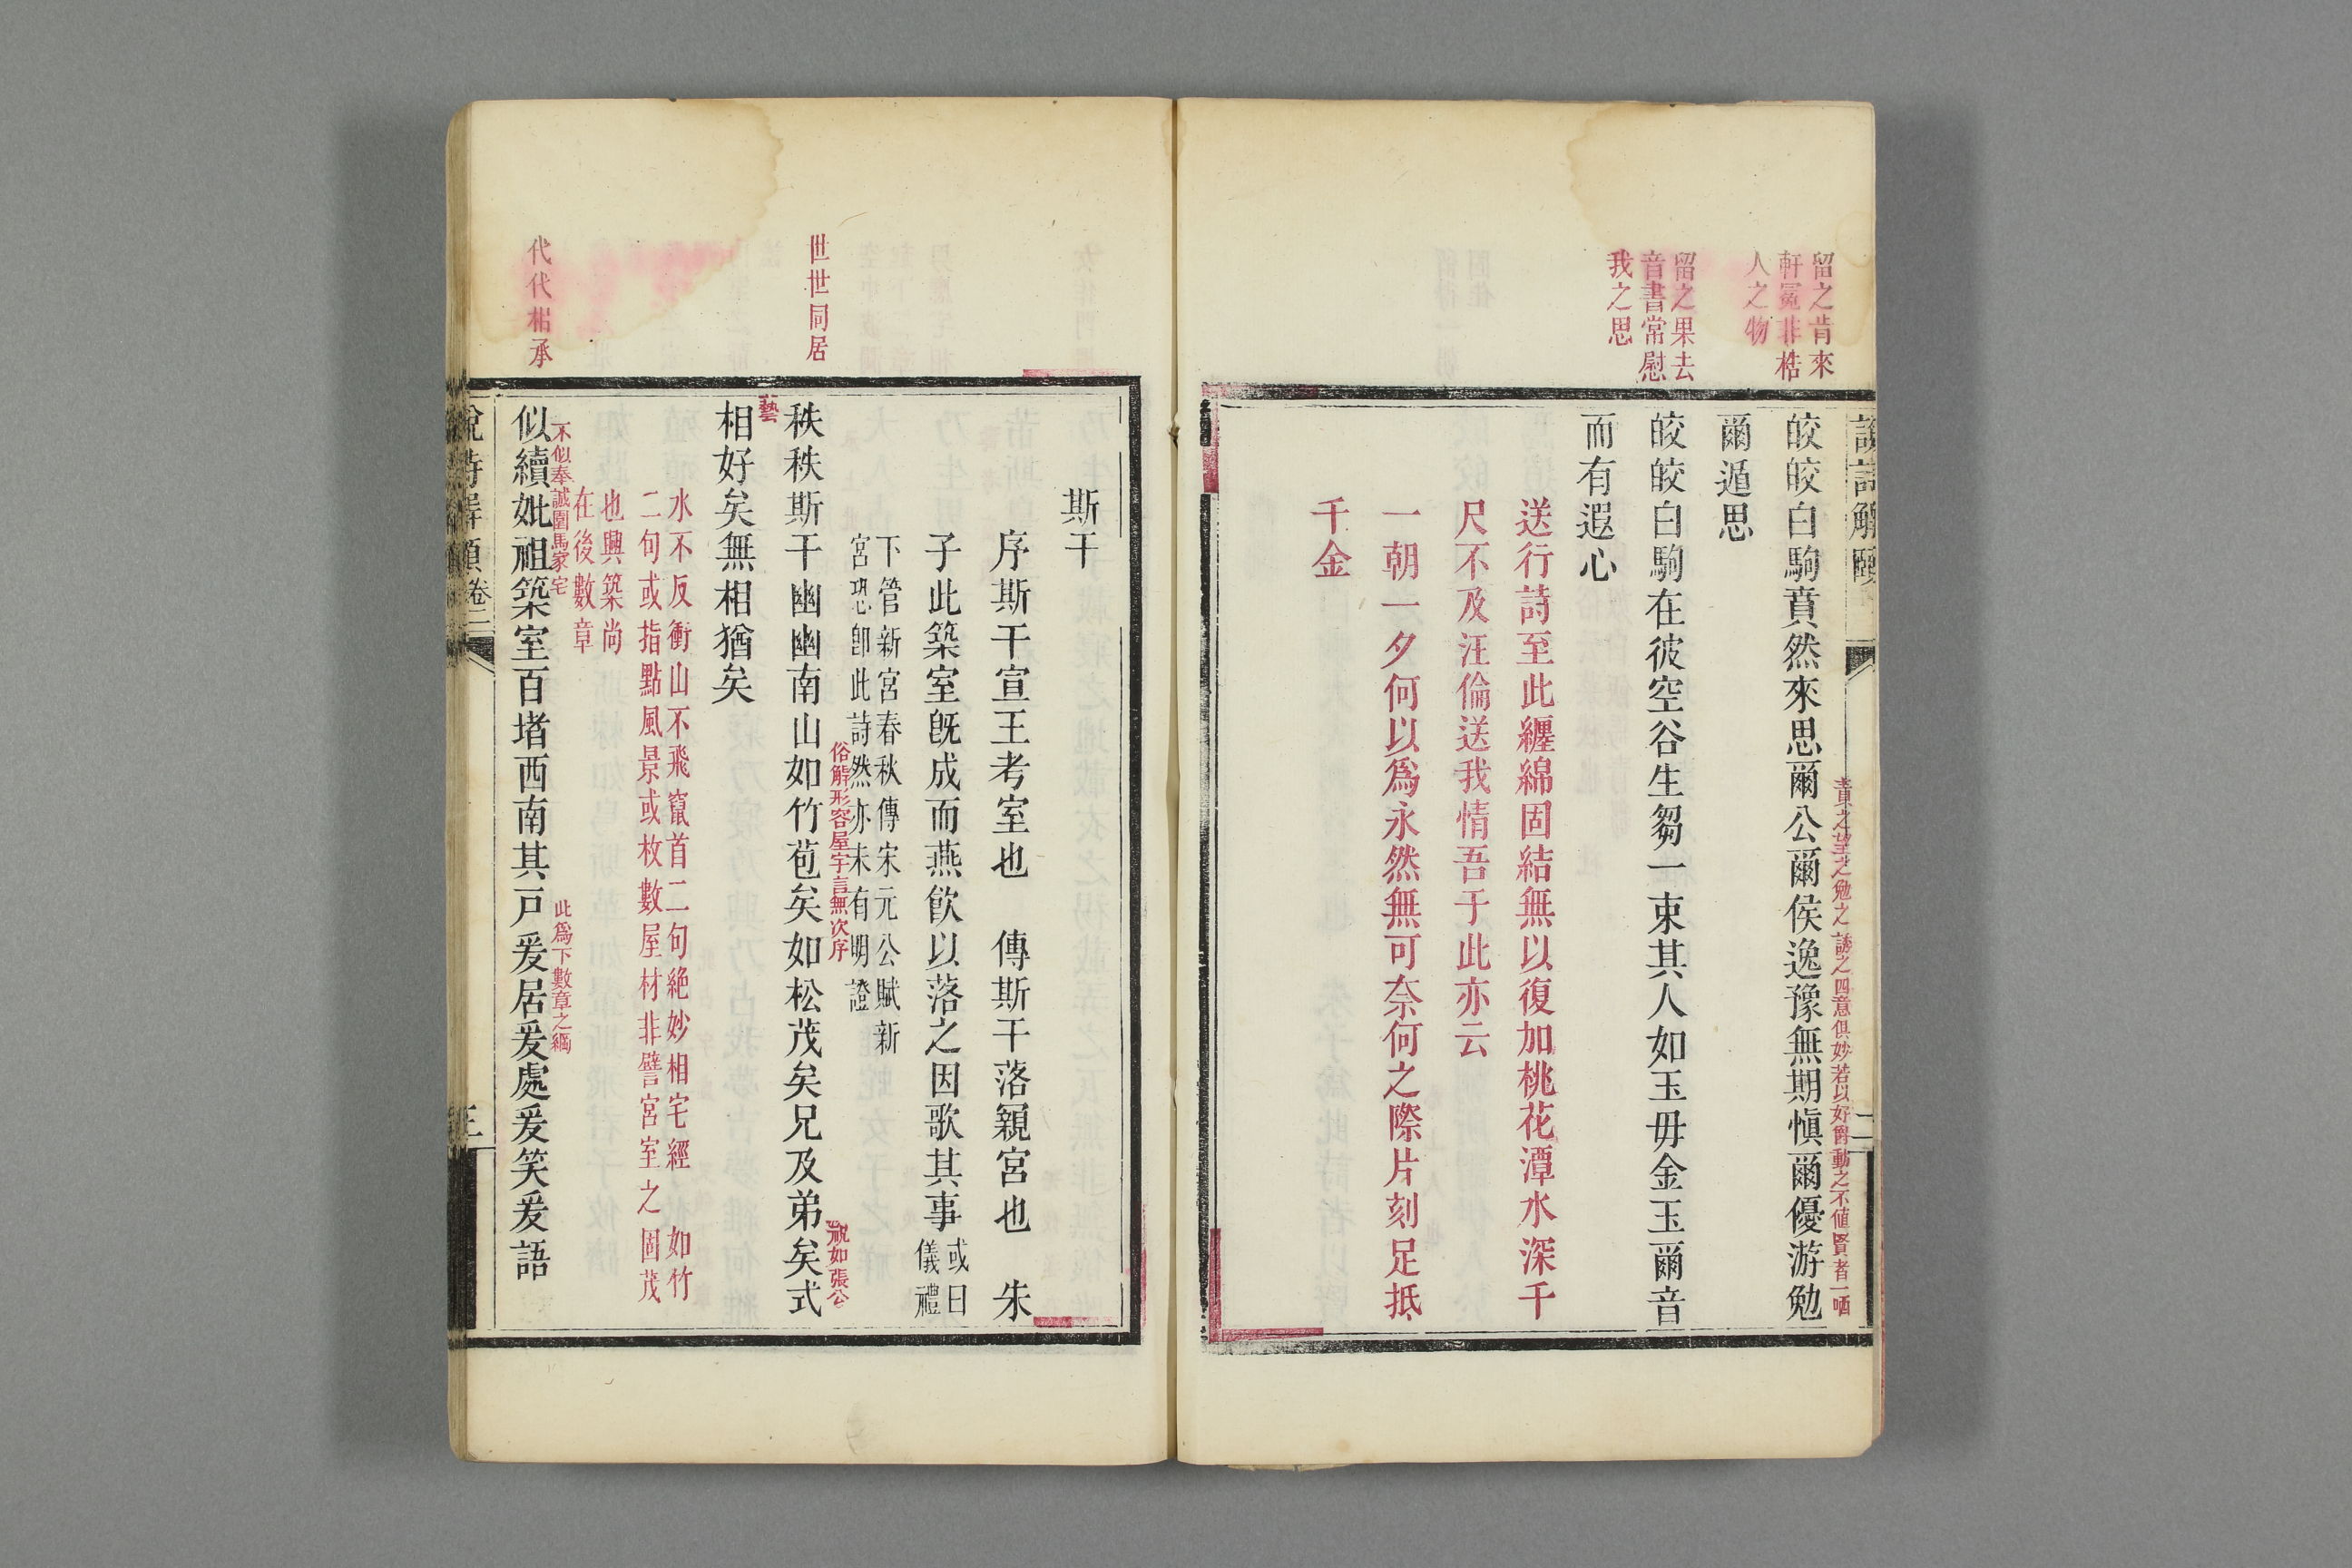 留之肯來
軒冕非梏
人之物
留之果去
音書常慰
我之思
說詩解頤
二
責之望之勉之誘之四意俱妙若以好爵動之不値賢者一哂
皎皎白駒賁然來思爾公爾侯逸豫無期愼爾優游勉
爾遁思
皎皎白駒在彼空谷生芻一束其人如玉毋金玉爾音
而有遐心
送行詩至此纏綿固結無以復加桃花潭水深千
尺不及汪倫送我情吾于此亦云
一朝一夕何以爲永然無可奈何之際片刻足抵
千金
世世同居
代代相承
斯干
序斯干宣王考室也　傳斯干落親宮也　朱
子此築室旣成而燕飮以落之因歌其事
或曰
儀禮
下管新宮春秋傳宋元公賦新
宮恐卽此詩然亦未有明證
俗解形容屋宇言無次序
祝如張公
秩秩斯干幽幽南山如竹苞矣如松茂矣兄及弟矣式
藝
相好矣無相猶矣
水不反衝山不飛竄首二句絶妙相宅經　如竹
二句或指點風景或枚數屋材非譬宮室之固茂
也興築尚
在後數章
不似奉誠園馬家宅
此爲下數章之綱
似續妣祖築室百堵西南其戸爰居爰處爰笑爰語
說詩解頤卷二
三